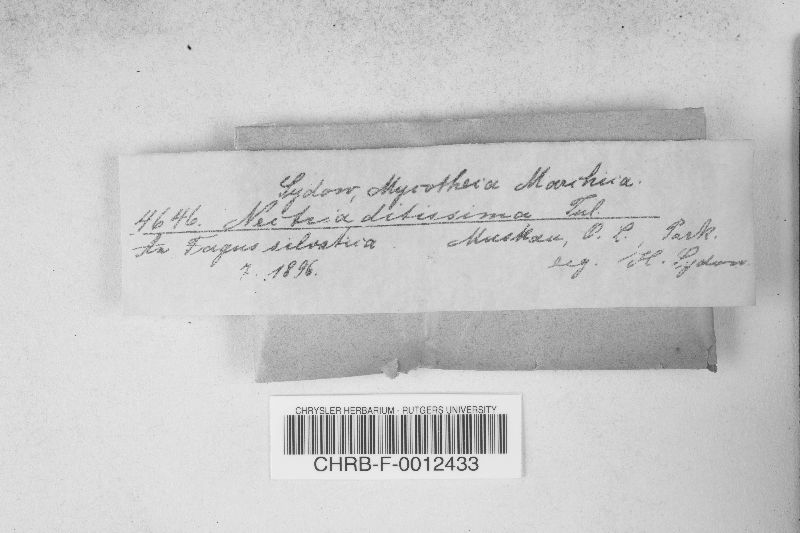 Sydow, Mycotheca Marchica.
4646. Nectria ditissima Tul.
An Fagus silvatica Muskau, O. L., Park.
7. 1896. leg. H. Sydow.
CHRYSLER HERBARIUM - RUTGERS UNIVERSITY
CHRB-F-0012433